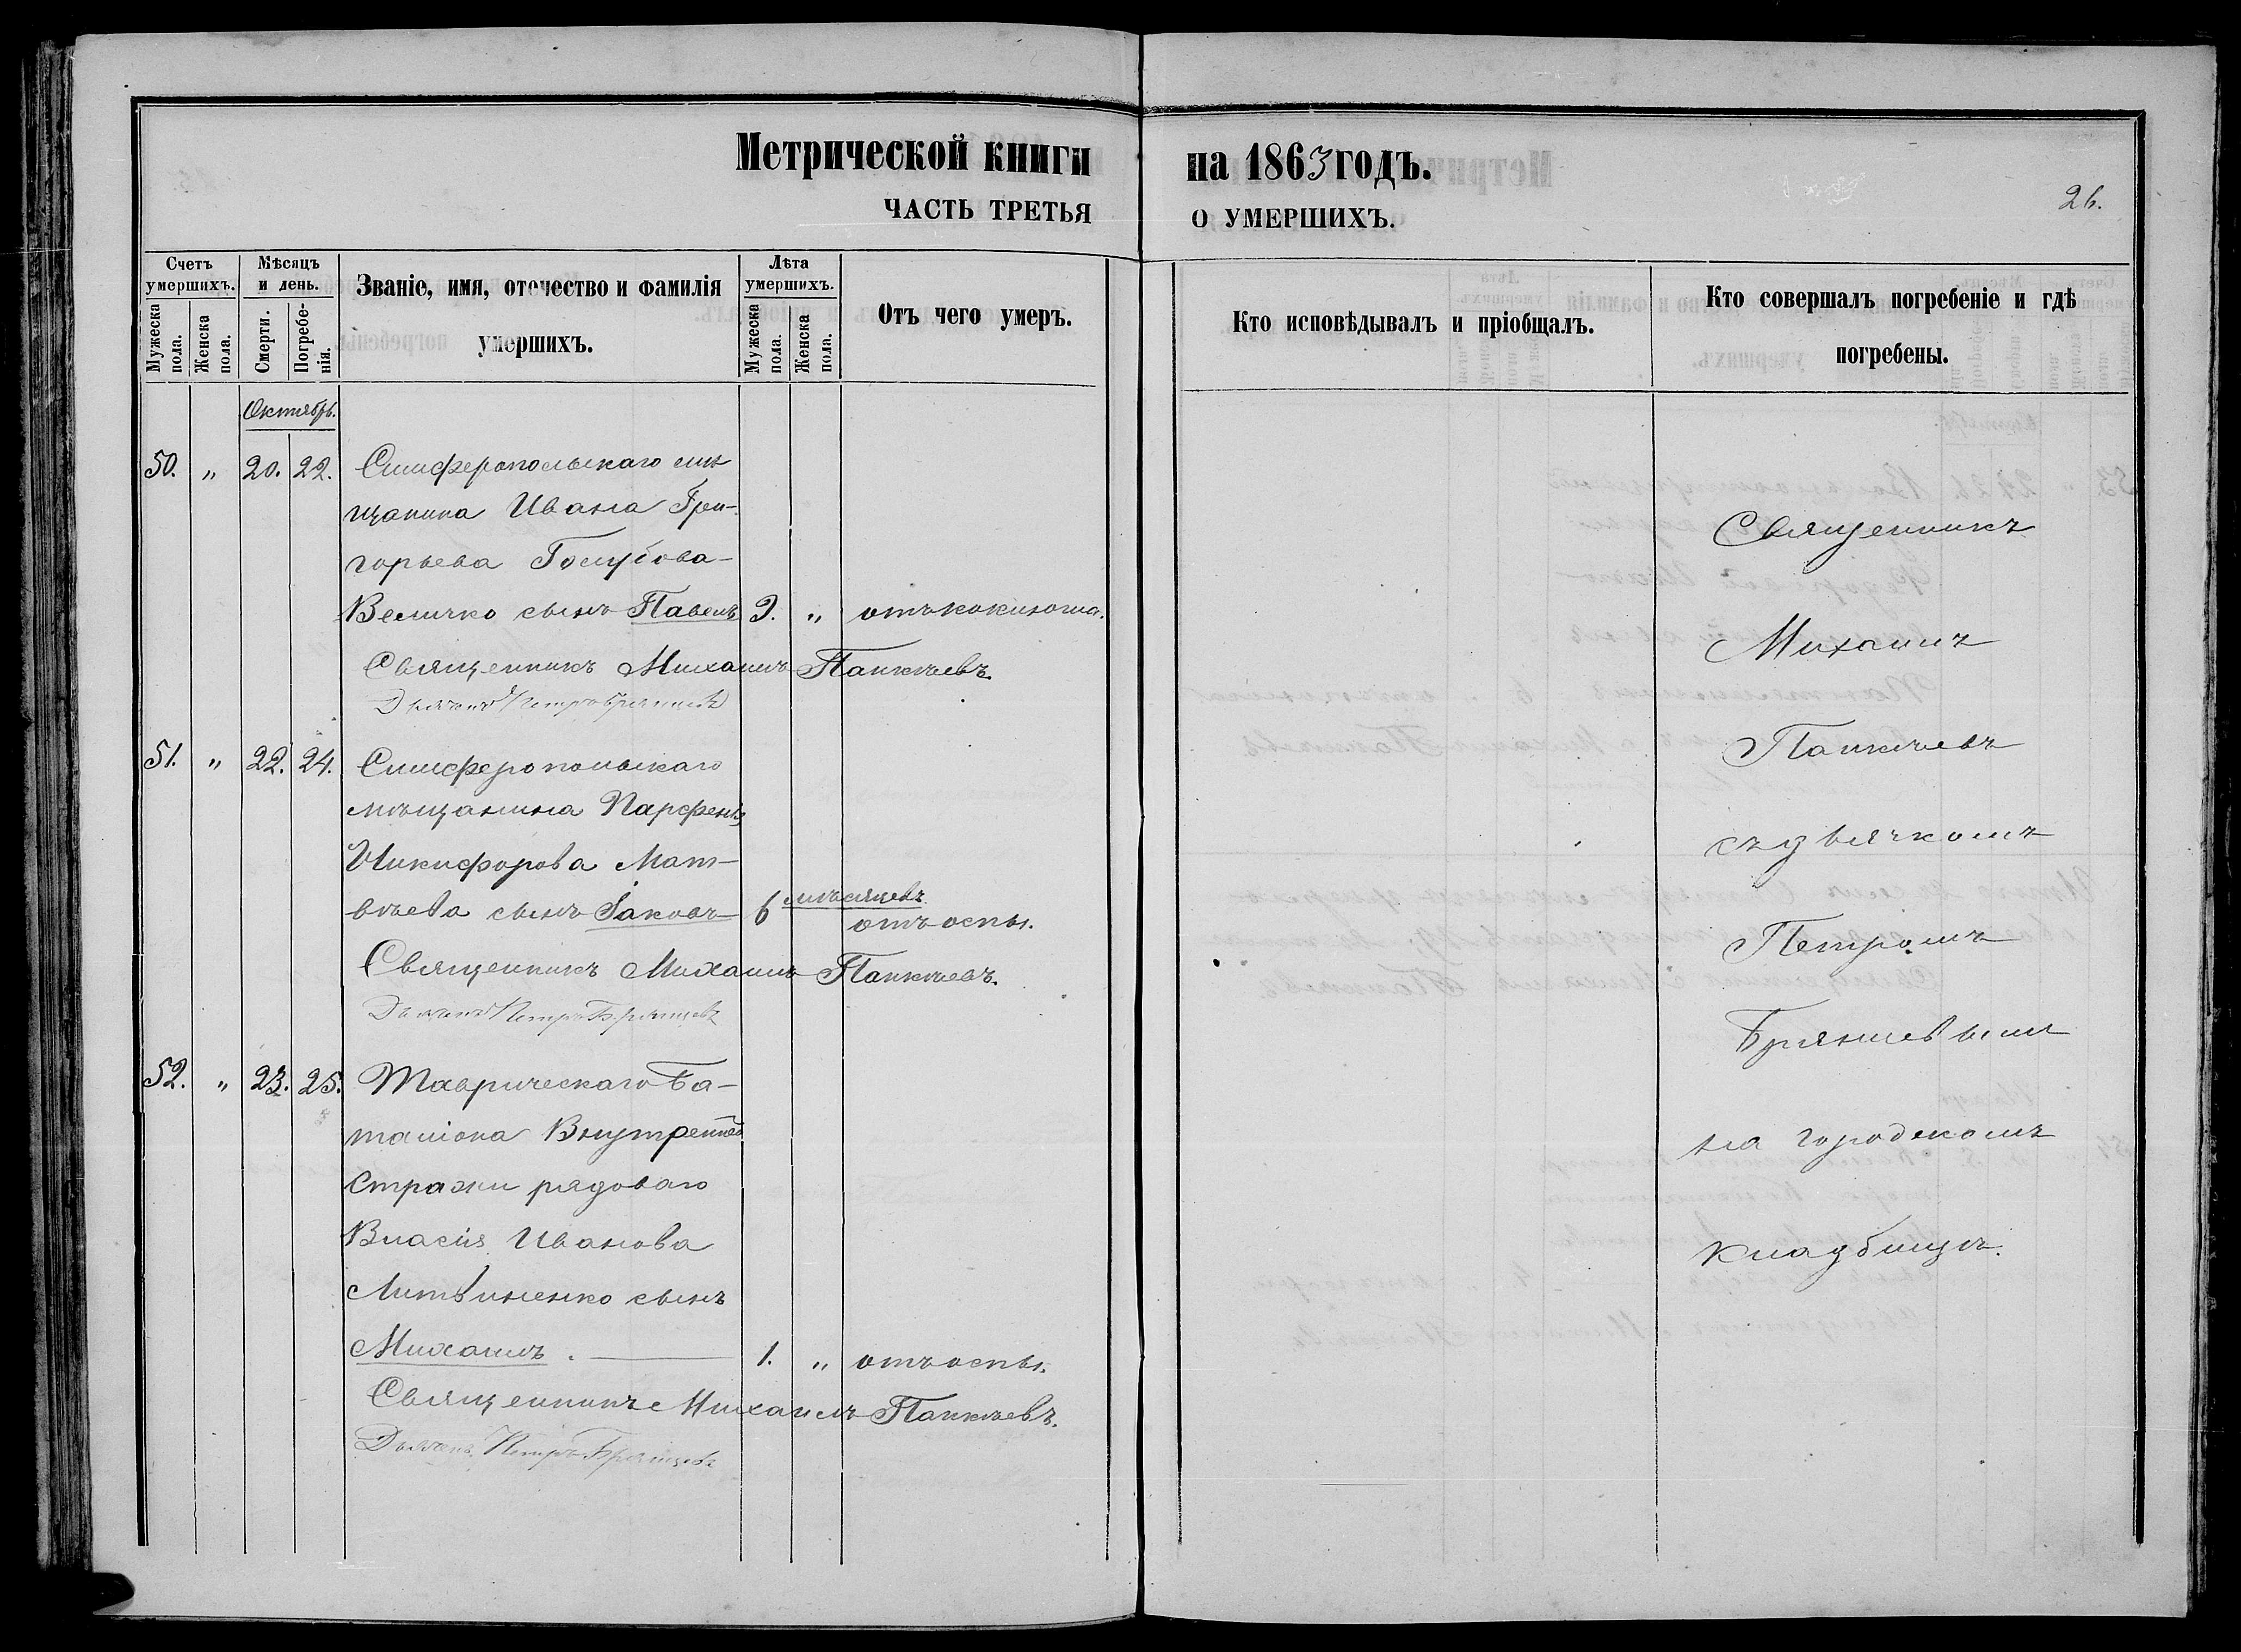 Метрической книги
ЧАСТЬ ТРЕТЬЯ
Счетъ умершихъ.
Мужеска пола.
Женска пола.
Мѣсяцъ и день.
Смерти.
Погребе-нія.
Званіе, имя, отечество и фамилія
умершихъ.
Лѣта умершихъ.
Мужеска пола.
Женска пола.
Отъ чего умеръ.
Октябрь.
50. „ 20. 22. Симферопольскаго мѣ
щанина Ивана Гри-
горьева Голубова-
Величко сынъ Павелъ 2. „ отъ коклюша.
Священникъ Михаилъ Панкѣевъ.
Дьячекъ Петръ Брянцевъ
51. „ 22. 24. Симферопольскаго
мѣщанина Парфенія
Никифорова Мат-
вѣева сынъ Іаковъ 6 мѣсяцевъ
отъ оспы.
Священникъ Михаилъ Панкѣевъ.
Дьячекъ Петръ Брянцевъ
52. „ 23. 25. Таврическаго Ба-
таліона Внутренней
Стражи рядоваго
Власія Иванова
Литвиненко сынъ
Михаилъ. 1. „ отъ оспы.
Священникъ Михаилъ Панкѣевъ.
Дьячекъ Петръ Брянцевъ
на 1863 годъ.
О УМЕРШИХЪ.
26.
Кто исповѣдывалъ и пріобщалъ.
Кто совершалъ погребеніе и гдѣ
погребены.
Священникъ
Михаилъ
Панкѣевъ
съ дьячкомъ
Петромъ
Брянцевымъ
на городскомъ
кладбищѣ.